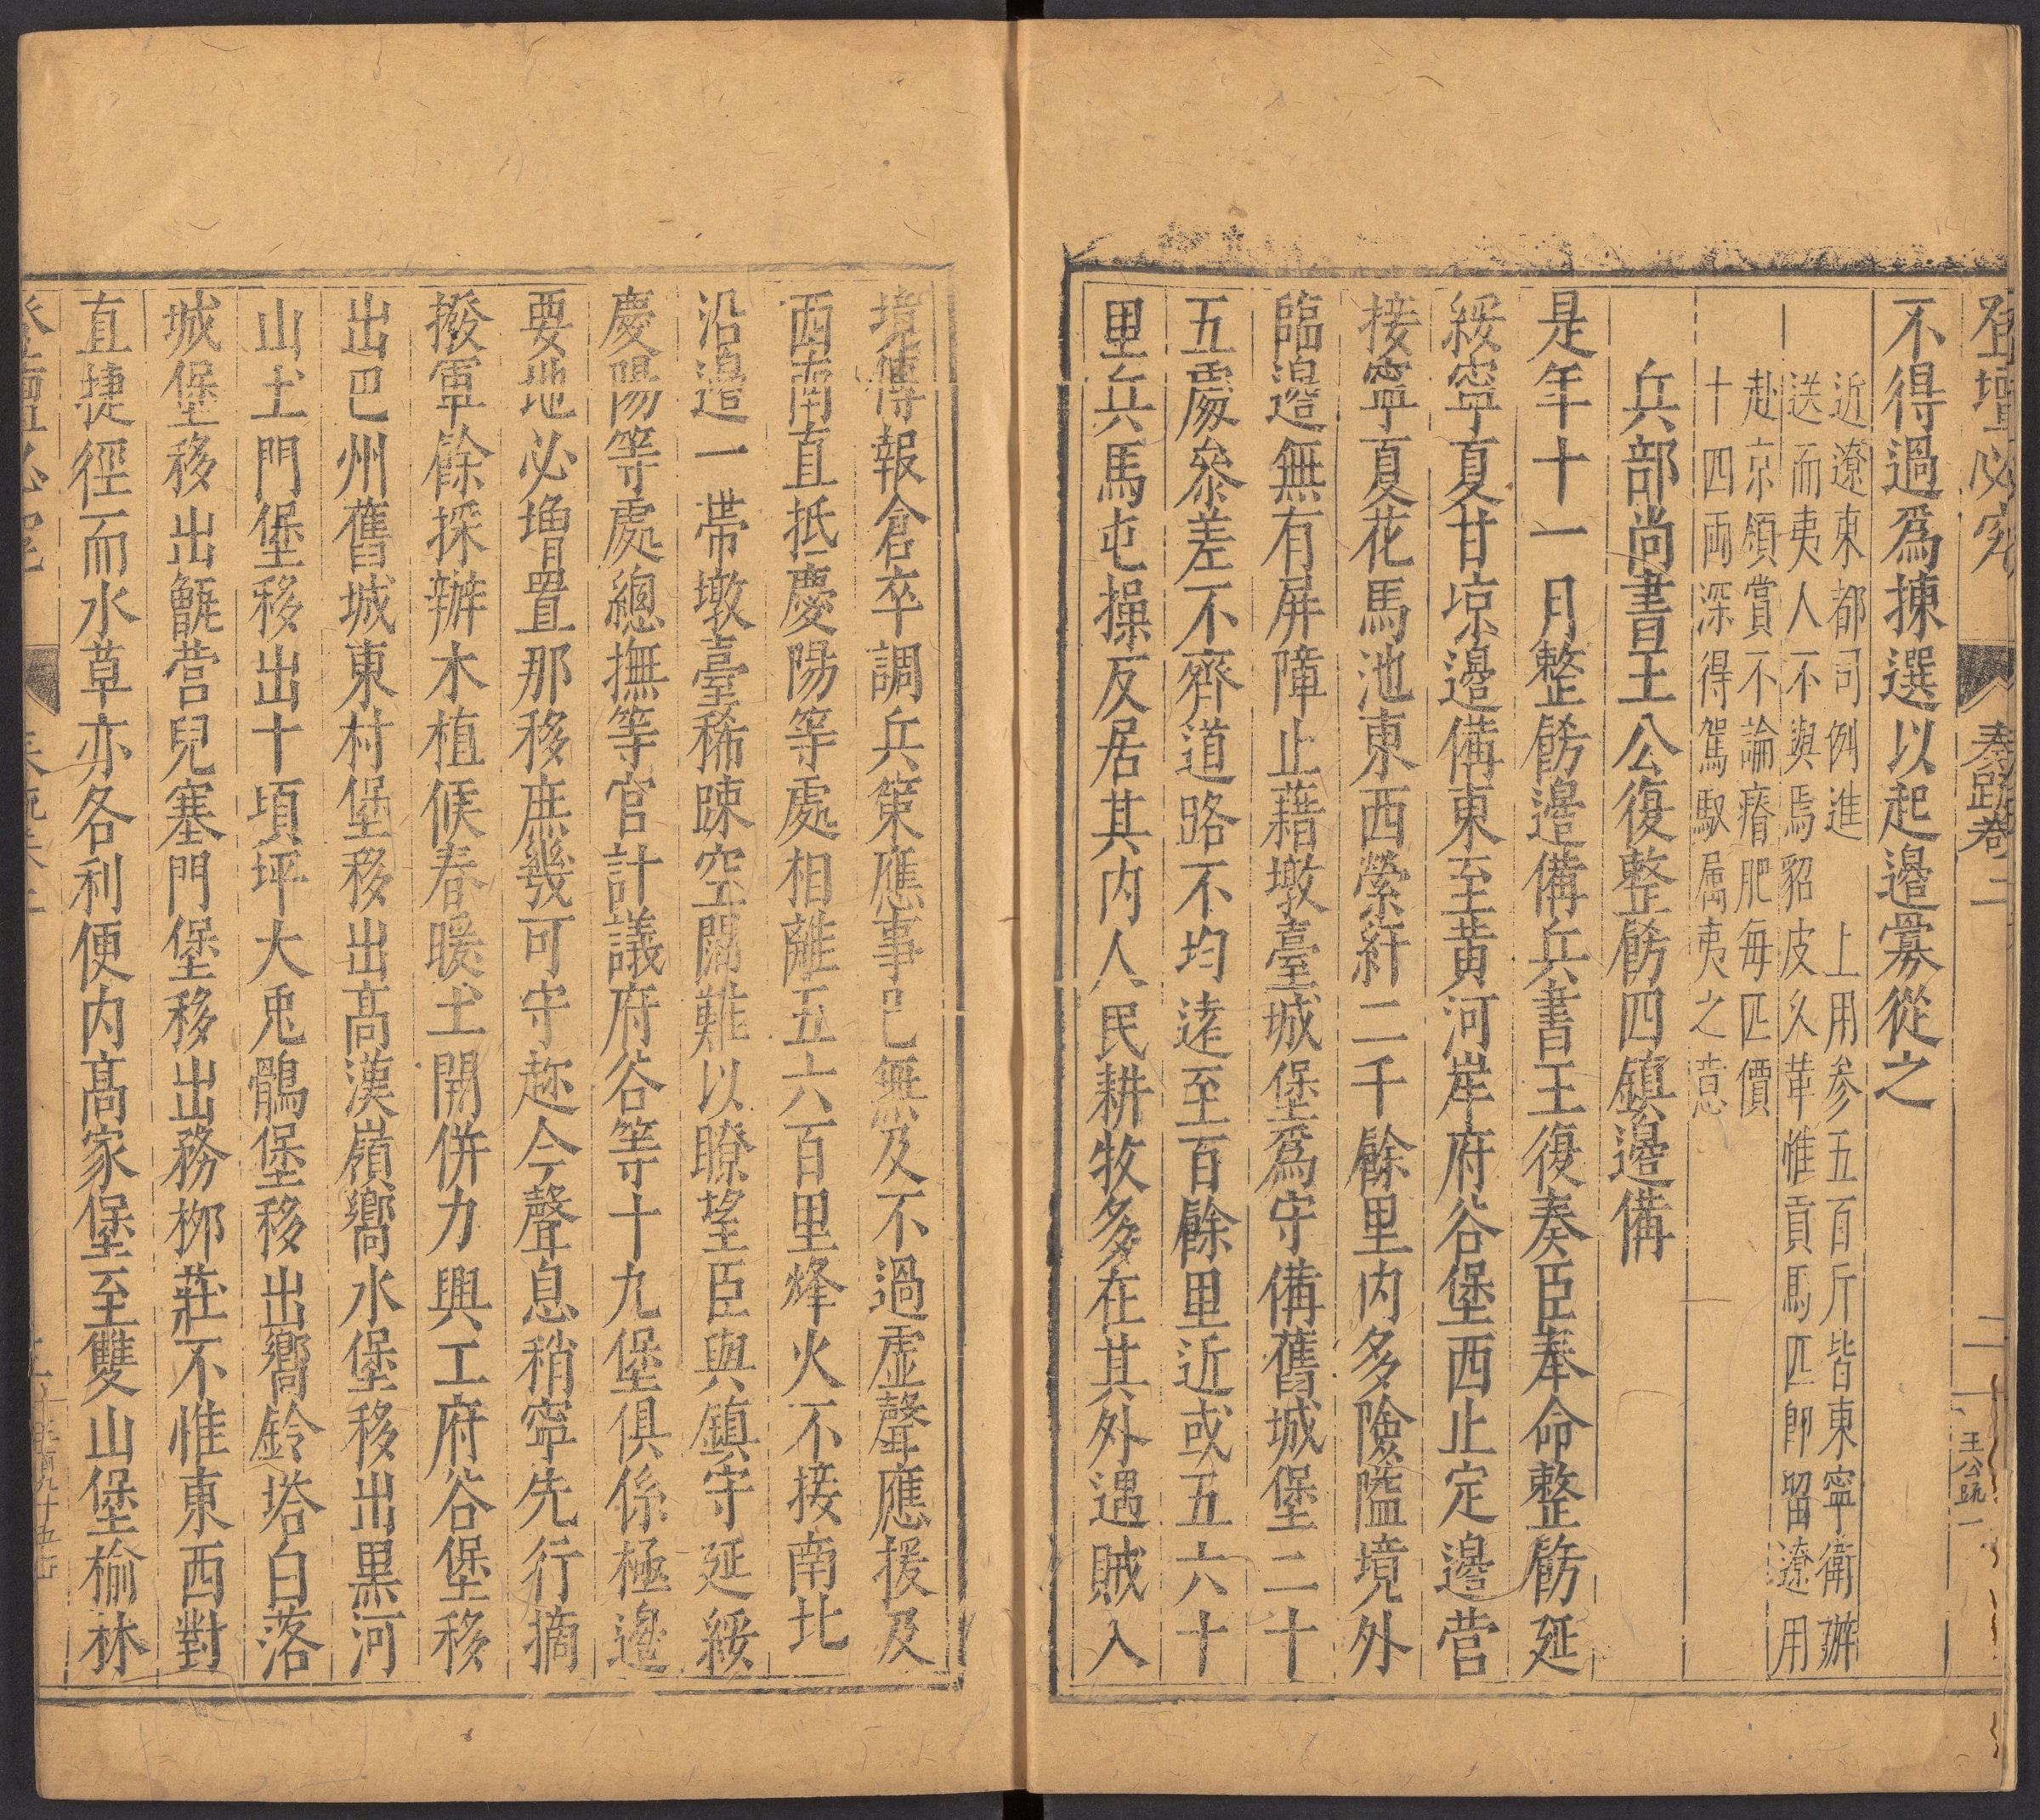 登壇必究
奏疏卷二
二
王公疏一
不得過爲揀選以起邊釁從之
近遼東都司例進　上用参五百斤皆東寧衛辦
送而夷人不與焉貂皮久革惟貢馬匹卽留遼用
赴京領賞不論瘠肥每匹價
十四兩深得駕馭属夷之意
兵部尚書王公復整飭四鎮邊備
是年十一月整飭邊備兵書王復奏臣奉命整飭延
綏寧夏甘凉邊備東至黄河岸府谷堡西止定邊营
接寧夏花馬池東西縈紆二千餘里内多險隘境外
臨邉無有屏障止藉墩臺城堡爲守備舊城堡二十
五處叅差不齊道路不均遠至百餘里近或五六十
里兵馬屯操反居其内人民耕牧多在其外遇賊入
境傳報倉卒調兵策應事已無及不過虛聲應援及
西南直抵慶陽等處相離五六百里烽火不接南北
沿邉一帶墩臺稀踈空闊難以瞭望臣與鎮守延綏
慶陽等處總撫等官計議府谷等十九堡俱係極邉
要地必增置那移庶幾可守趂今聲息稍寧先行摘
撥軍餘採辦木植候春暖土開併力興工府谷堡移
出巴州舊城東村堡移出高漢嶺嚮水堡移出黒河
山土門堡移出十頃坪大兎鶻堡移出嚮鈴塔白落
城堡移出甎营兒塞門堡移出務栁莊不惟東西對
直捷徑而水草亦各利便内高家堡至雙山堡榆林